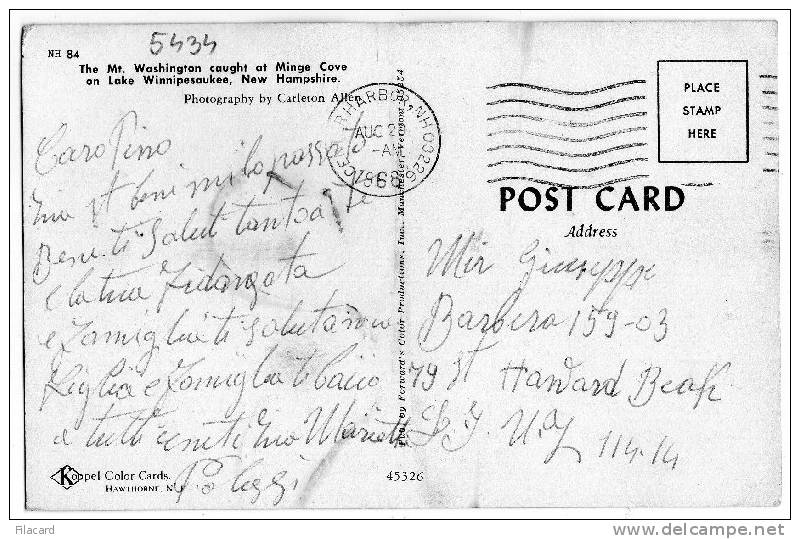 5434
NH 84
The Mt. Washington caught at Minge Cove
on Lake Winnipesaukee, New Hampshire.
Photography by Carleton Allen
CENTER HARBOR, NH 03226
AUG 2
-AM
1968
PLACE
STAMP
HERE
POST CARD
Address
Caro Pino
milo passato
Bene ti Salut tanto a te
e la tua Fidanzata
e Famiglia ti Salutano
Figlia e Famiglia ti bacio
a tutti
Poleggi
Mir Giuseppe
Barbera 159-03
79 St Haward Beach
L.I. N.Y. 114-14
Pub. by Forward's Color Productions, Inc., Manchester, Vermont 05254
Koppel Color Cards.
HAWTHORNE, N.J.
45326
Filacard
http://www.delcampe.net